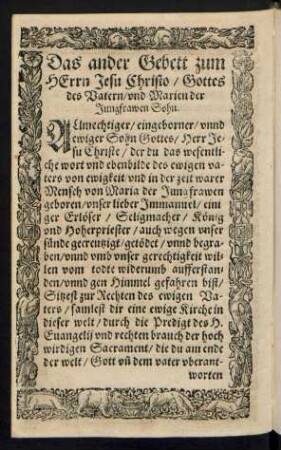 Das ander Gebett zum
HErrn Jesu Christo / Gottes
des Vatern / vnd Marien der
Jungfrawen Sohn.
ALlmechtiger / eingeborner / vnnd
ewiger Sohn Gottes / Herr Je-
su Christe / der du das wesentli-
che wort vnd ebenbilde des ewigen va-
ters von ewigkeit vnd in der zeit warer
Mensch von Maria der Jungfrawen
geboren / vnser lieber Immanuel / eini
ger Erlöser / Seligmacher / König
vnd Hoherpriester / auch wegen vnser
sünde gecreutzigt / getödet / vnnd begra-
ben / vnnd vmb vnser gerechtigkeit wil-
len vom todte widerumb aufferstan-
den / vnnd gen Himmel gefahren bist /
Sitzest zur Rechten des ewigen Va-
ters / samlest dir eine ewige Kirche in
dieser welt / durch die Predigt des H.
Euangelij vnd rechten brauch der hoch
wirdigen Sacrament / die du am ende
der welt / Gott vn̄ dem vater vberant-
worten